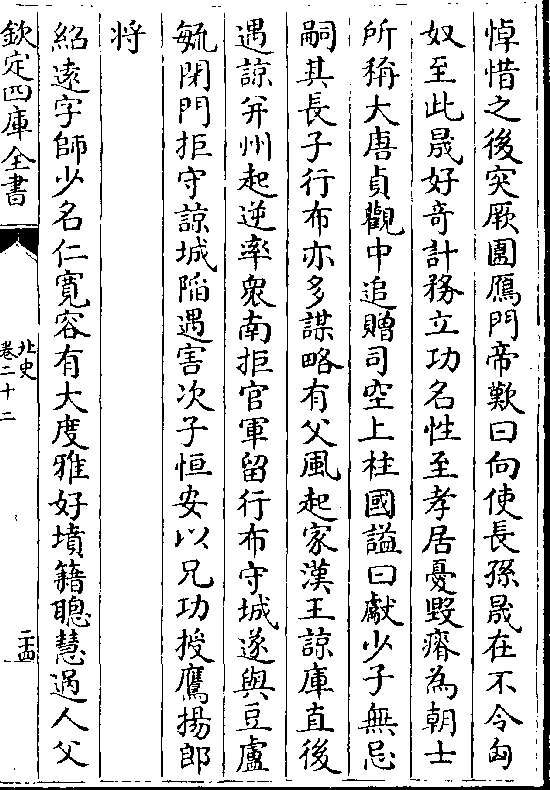 悼惜之後突厥圍鴈門帝歎曰向使長孫晟在不令匈
奴至此晟好奇計務立功名性至孝居憂毁瘠為朝士
所稱大唐貞觀中追贈司空上柱國諡曰獻少子無忌
嗣其長子行布亦多謀略有父風起家漢王諒庫直後
遇諒并州起逆率衆南拒官軍留行布守城遂與豆盧
毓閉門拒守諒城陷遇害次子恒安以兄功授鷹揚郎
将
紹遠字師少名仁寛容有大度雅好墳籍聰慧過人父
欽定四庫全書
北史
卷二十二
二十四